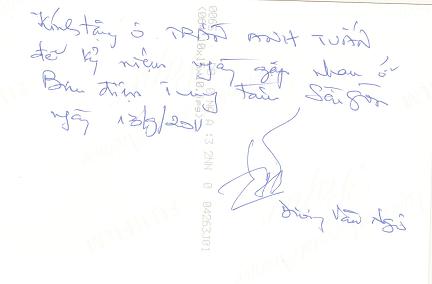 Kính tặng ô TRẦN ANH TUẤN
để kỷ niệm ngày gặp nhau ở
Bưu điện Trung tâm Sài Gòn
ngày 13/9/2011
Dương Văn Ngộ